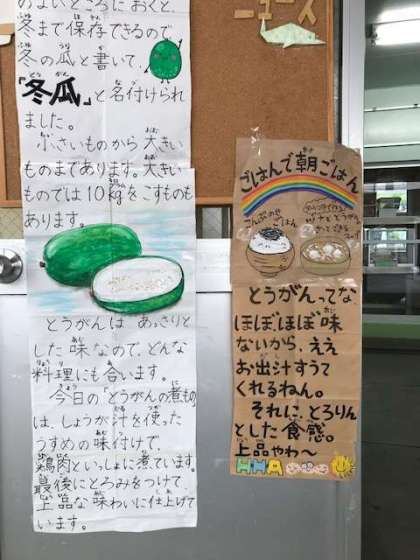 のよいところにおくと、
冬まで保存できるので
冬の瓜と書いて、
「冬瓜」と名付けられ
ました。
小さいものから大きい
ものまであります。大きい
ものでは10kgをこすものも
あります。
とうがんは あっさりと
した味なので、どんな
料理にも合います。
今日の「とうがんの煮もの」
は、しょうが汁を使った
うすめの味付けで、
鶏肉といっしょに煮ています。
最後にとろみをつけて、
上品な味わいに仕上げて
います。
ニュース
ごはんで朝ごはん
こんぶのせ
ごはん
とうがんってな
ほぼ、ほぼ味
ないから、ええ
お出汁すうて
くれるねん。
それに、とろりん
とした食感。
上品やわ〜